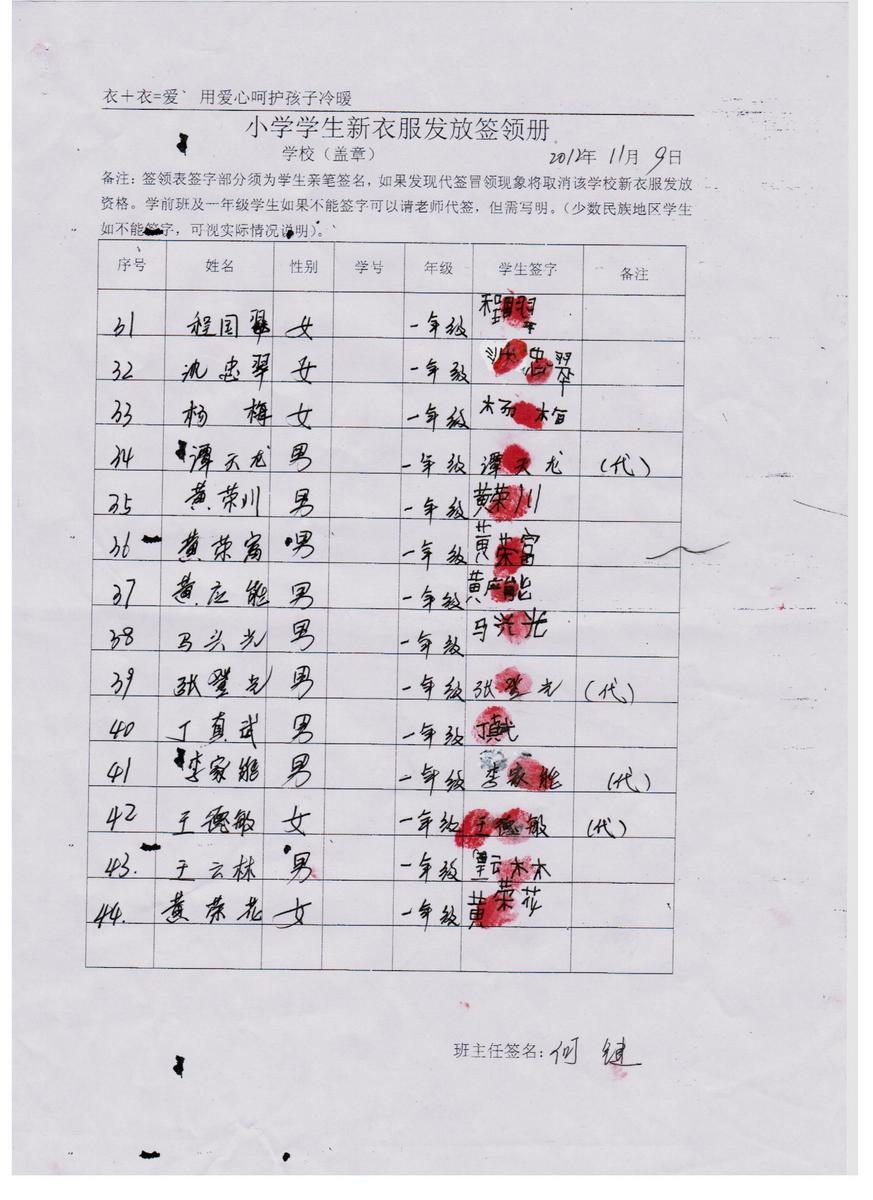 衣＋衣=爱 用爱心呵护孩子冷暖
小学学生新衣服发放签领册
学校（盖章） 2012年 11月 9日
备注：签领表签字部分须为学生亲笔签名，如果发现代签冒领现象将取消该学校新衣服发放
资格。学前班及一年级学生如果不能签字可以请老师代签，但需写明。（少数民族地区学生
如不能签字，可视实际情况说明）。
序号 姓名 性别 学号 年级 学生签字 备注
31 程国翠 女 一年级 程国翠
32 沈忠翠 女 一年级 沈忠翠
33 杨梅 女 一年级 杨梅
34 谭天龙 男 一年级 谭天龙 （代）
35 黄荣川 男 一年级 黄荣川
36 黄荣富 男 一年级 黄荣富
37 黄应能 男 一年级 黄应能
38 马兴光 男 一年级 马兴光
39 张登光 男 一年级 张登光 （代）
40 丁真武 男 一年级 丁真武
41 李家能 男 一年级 李家能 （代）
42 王德敏 女 一年级 王德敏 （代）
43. 王云林 男 一年级 云林
44. 黄荣花 女 一年级 黄荣花
班主任签名：何健